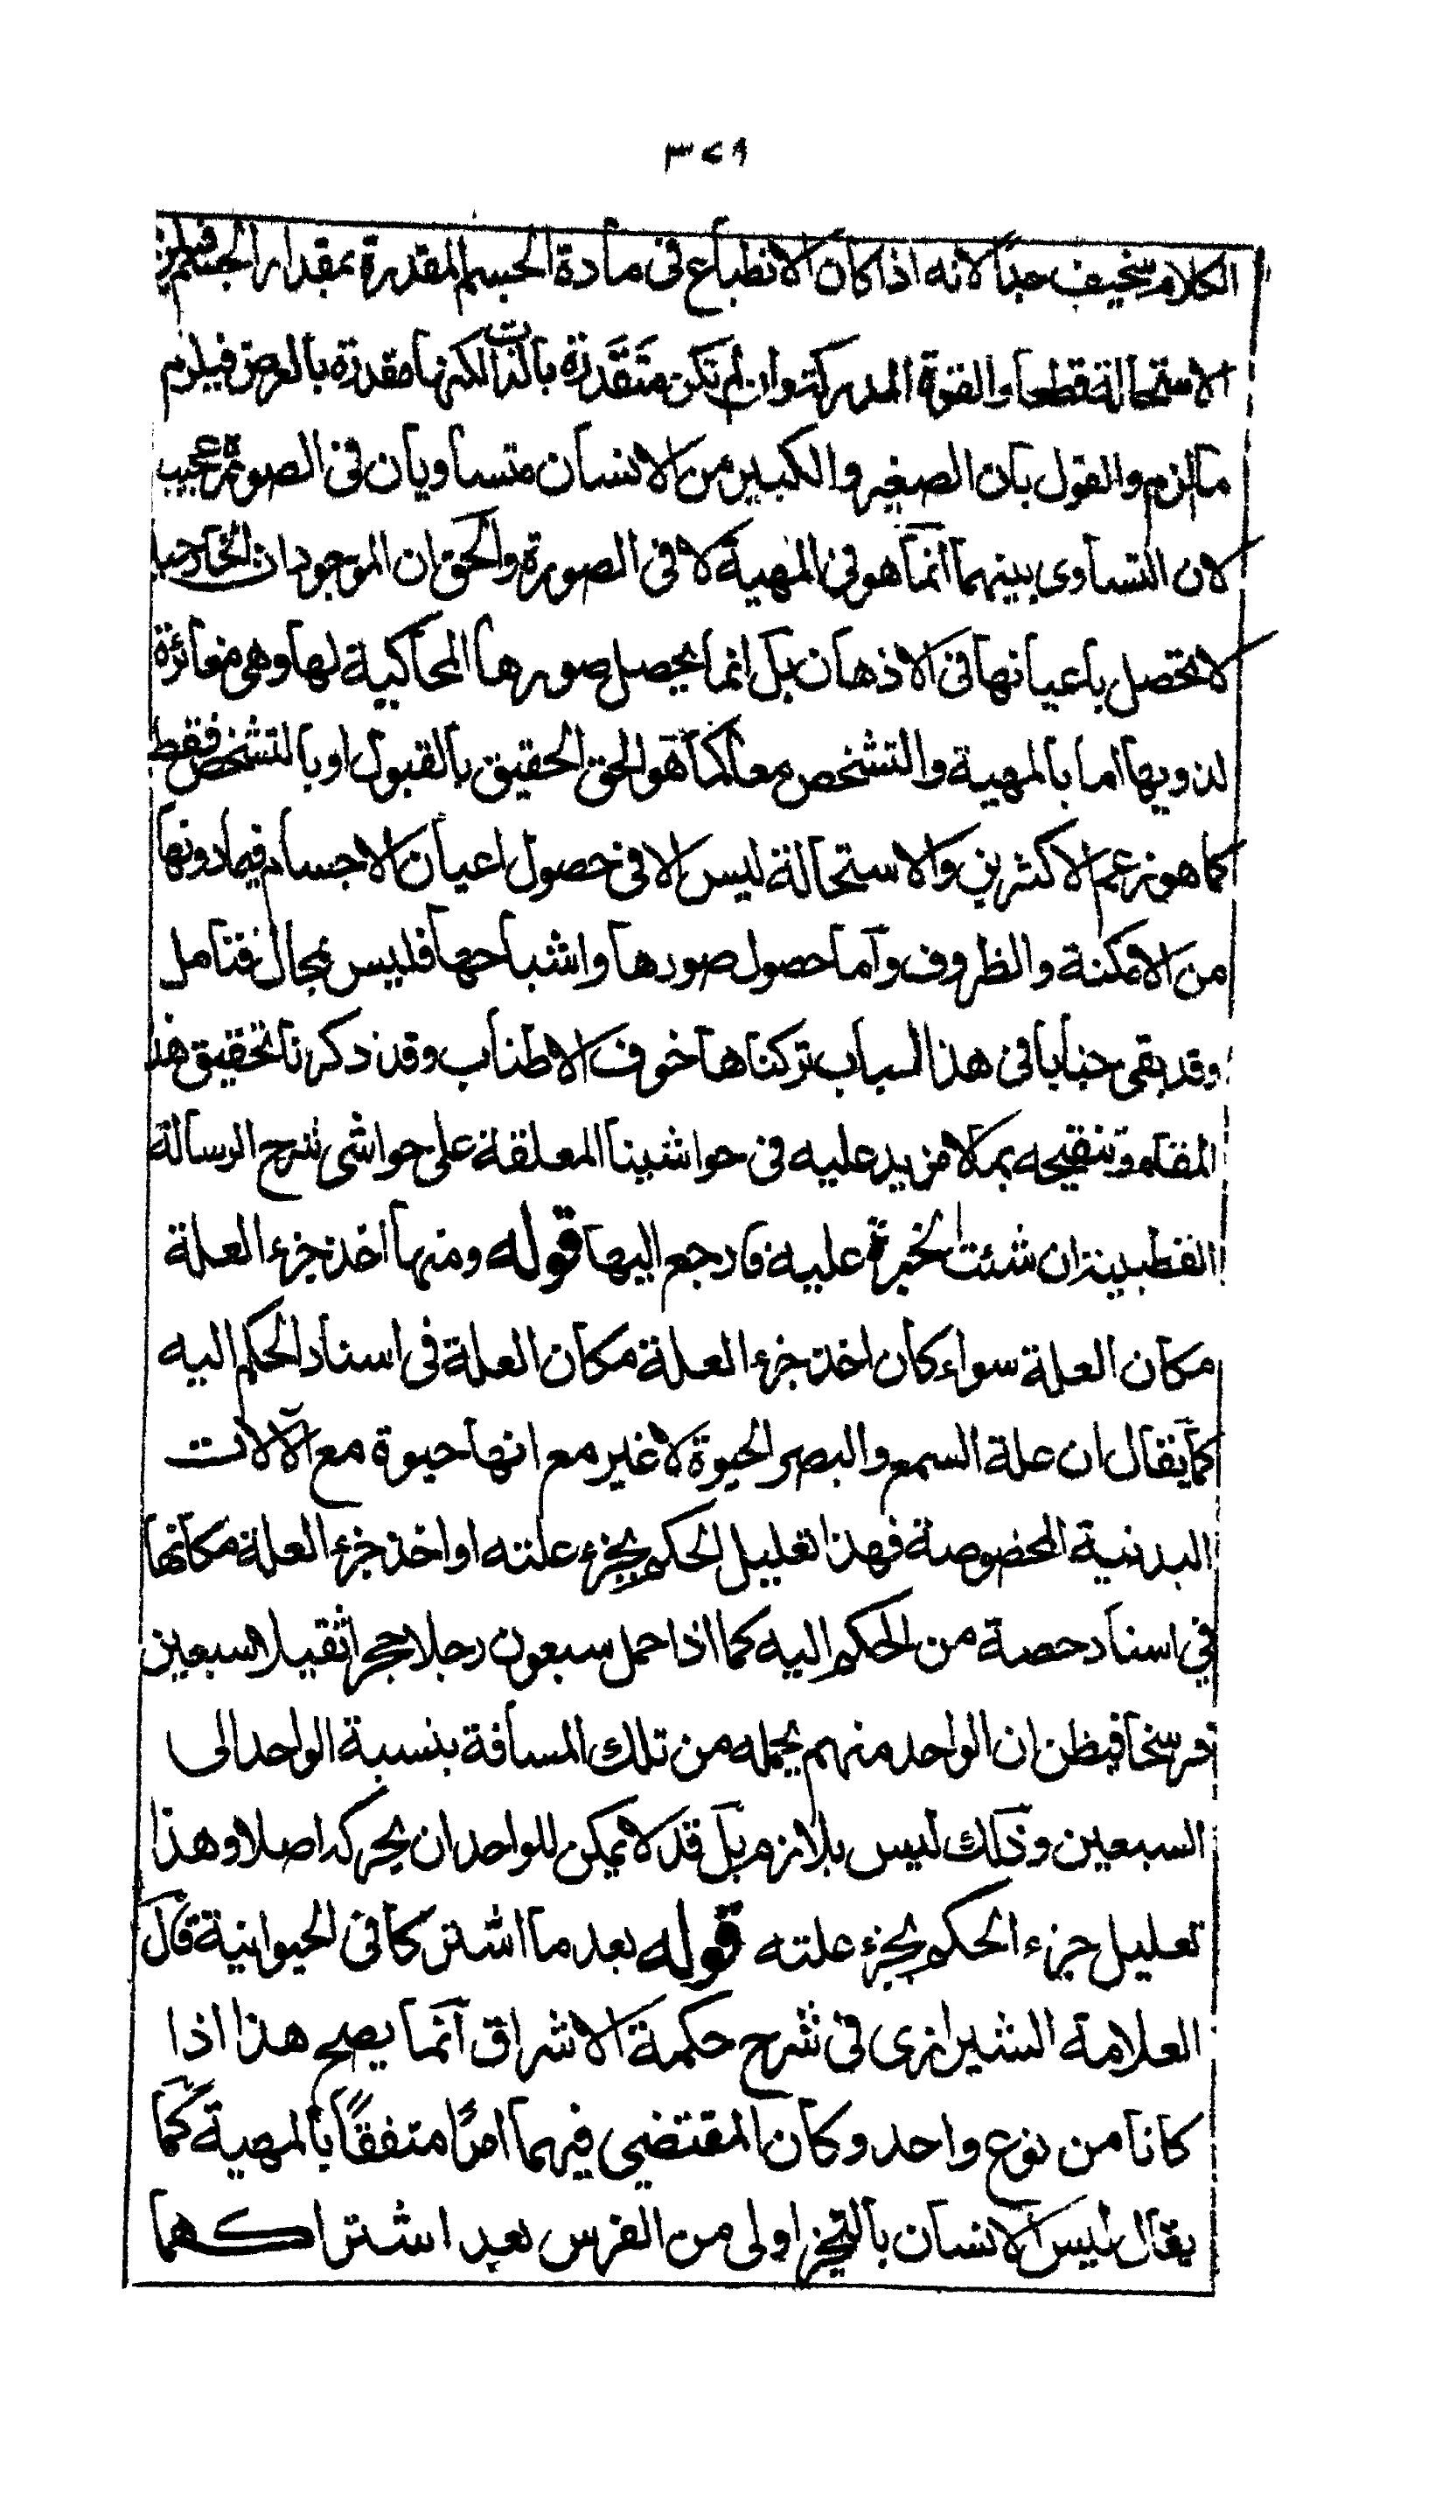 ٣٢٩
الكلام سخيف جداً لانه اذا كان الانطباع فى مادة الجسم المقدرة بمقدار الجسم فيلزم
الاستحالة قطعا والقوة المدركة وان لم تكن متقدرة بالذات لكنها مقدرة بالعرض فيلزم
ما لزم والقول بان الصغير والكبير من الانسان متساويان فى الصورة عجيب
لان التساوى بينهما انما هو فى المهية لا فى الصورة والحق ان الموجودات الخارجية
لا تحصل باعيانها فى الاذهان بل انما يحصل صورها المحاكية لها وهى مغائرة
لذويها اما بالمهية والتشخص معا كما هو الحق الحقيق بالقبول او بالتشخص فقط
كما هو زعم الاكثرين والاستحالة ليس الا فى حصول اعيان الاجسام فيما دونها
من الامكنة والظروف واما حصول صورها واشباحها فليس بمحال فتامل
وقد بقى خبايا فى هذا الباب تركناها خوف الاطناب وقد ذكرنا تحقيق هذا
المقام وتنقيحه بما لا مزيد عليه فى حواشينا المعلقة على حواشى شرح الرسالة
القطبية ان شئت الخبرة عليه فارجع اليها قوله ومنها اخذ جزء العلة
مكان العلة سواء كان اخذ جزء العلة مكان العلة فى اسناد الحكم اليه
كما يقال ان علة السمع والبصر الحيوة لا غير مع انها حيوة مع الآلات
البدنية المخصوصة فهذا تعليل الحكم بجزء علته او اخذ جزء العلة مكانها
فى اسناد حصة من الحكم اليه كما اذا حمل سبعون رجلا حجرا ثقيلا سبعين
فرسخا فيظن ان الواحد منهم يحمله من تلك المسافة بنسبة الواحد الى
السبعين وذلك ليس بلازم بل قد لا يمكن للواحد ان يحركه اصلا وهذا
تعليل جزء الحكم بجزء علته قوله بعد ما اشتركا فى الحيوانية قال
العلامة الشيرازى فى شرح حكمة الاشراق انما يصح هذا اذا
كانا من نوع واحد وكان المقتضي فيهما امرًا متفقًا بالمهية كما
يقال ليس الانسان بالتحيز اولى من الفرس بعد اشتراكهما